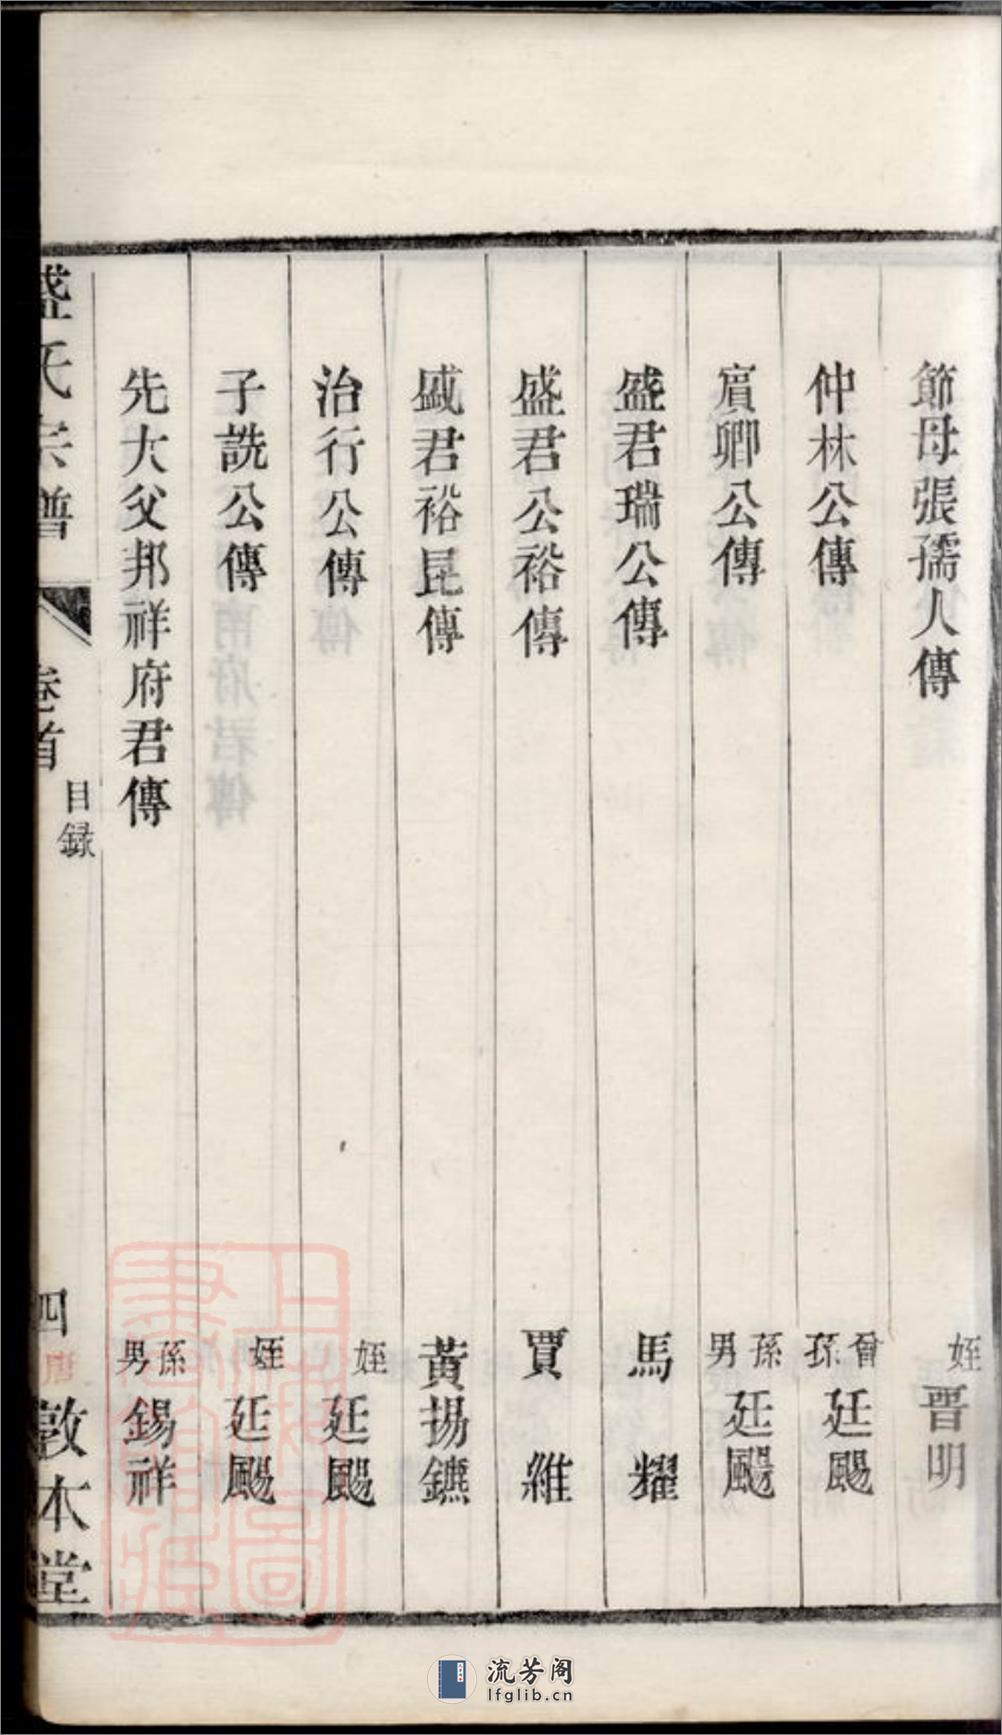 節母張孺人傳 姪晋明
仲林公傳 曾孫廷颺
賔卿公傳 孫男廷颺
盛君瑞公傳 馬耀
盛君公裕傳 賈維
盛君裕昆傳 黃揚鑣
治行公傳 姪廷颺
子詵公傳 姪廷颺
先大父邦祥府君傳 孫男錫祥
盛氏宗譜 卷首 目録 四 敦本堂
上海圖書館藏
流芳阁
lfglib.cn